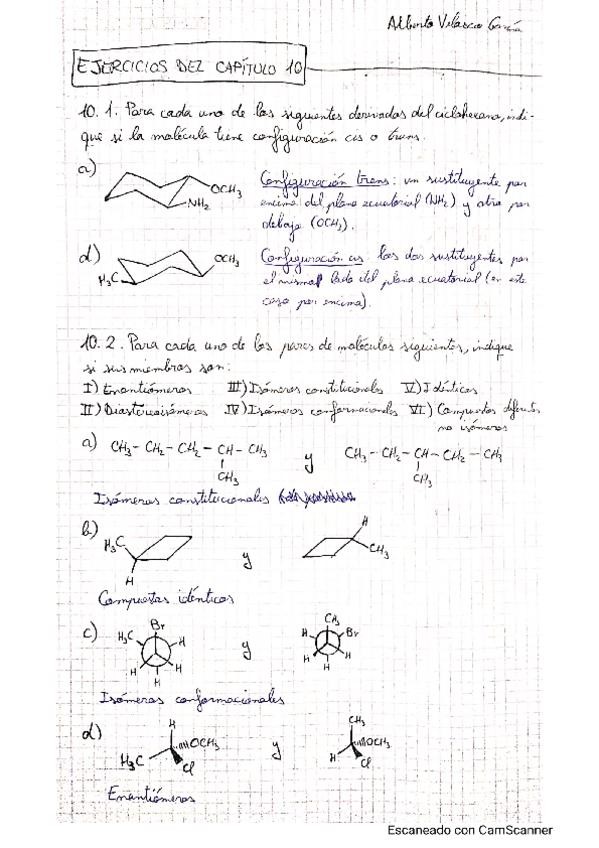 Alberto Velasco García
EJERCICIOS DEL CAPÍTULO 10
10.1. Para cada uno de los siguientes derivados del ciclohexano, indi-
que si la molécula tiene configuración cis o trans.
a)
OCH3
NH2
Configuración trans: un sustituyente por
encima del plano ecuatorial (NH2) y otro por
debajo (OCH3).
d)
H3C
OCH3
Configuración cis: los dos sustituyentes por
el mismo lado del plano ecuatorial (en este
caso por encima).
10.2. Para cada uno de los pares de moléculas siguientes, indique
si sus miembros son:
I) Enantiómeros III) Isómeros constitucionales V) Idénticos
II) Diastereoisómeros IV) Isómeros conformacionales VI) Compuestos diferentes
no isómeros
a) CH3-CH2-CH2-CH-CH3 y CH3-CH2-CH-CH2-CH3
CH3 CH3
Isómeros constitucionales
b) H3C H y H CH3
Compuestos idénticos
c) H3C Br H H H H y CH3 H Br H H H
Isómeros conformacionales
d) H H3C OCH3 Cl y CH3 H OCH3 Cl
Enantiómeros
Escaneado con CamScanner